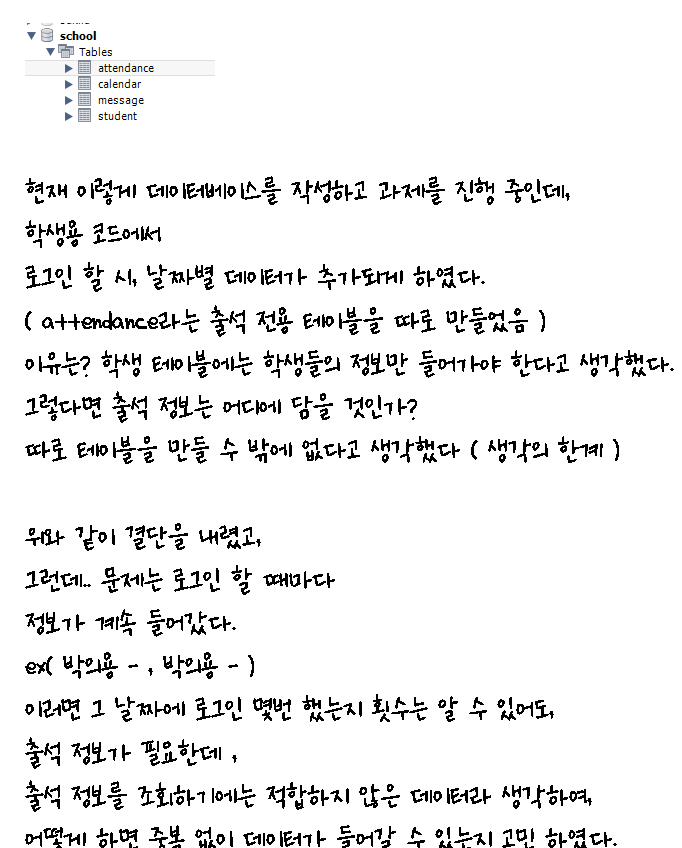 school
Tables
attendance
calendar
message
student
현재 이렇게 데이터베이스를 작성하고 과제를 진행 중인데,
학생용 코드에서
로그인 할 시, 날짜별 데이터가 추가되게 하였다.
( attendance라는 출석 전용 테이블을 따로 만들었음 )
이유는? 학생 테이블에는 학생들의 정보만 들어가야 한다고 생각했다.
그렇다면 출석 정보는 어디에 담을 것인가?
따로 테이블을 만들 수 밖에 없다고 생각했다 ( 생각의 한계 )
위와 같이 결단을 내렸고,
그런데.. 문제는 로그인 할 때마다
정보가 계속 들어갔다.
ex( 박의용 - , 박의용 - )
이러면 그 날짜에 로그인 몇번 했는지 횟수는 알 수 있어도,
출석 정보가 필요한데 ,
출석 정보를 조회하기에는 적합하지 않은 데이터라 생각하여,
어떻게 하면 중복 없이 데이터가 들어갈 수 있는지 고민 하였다.